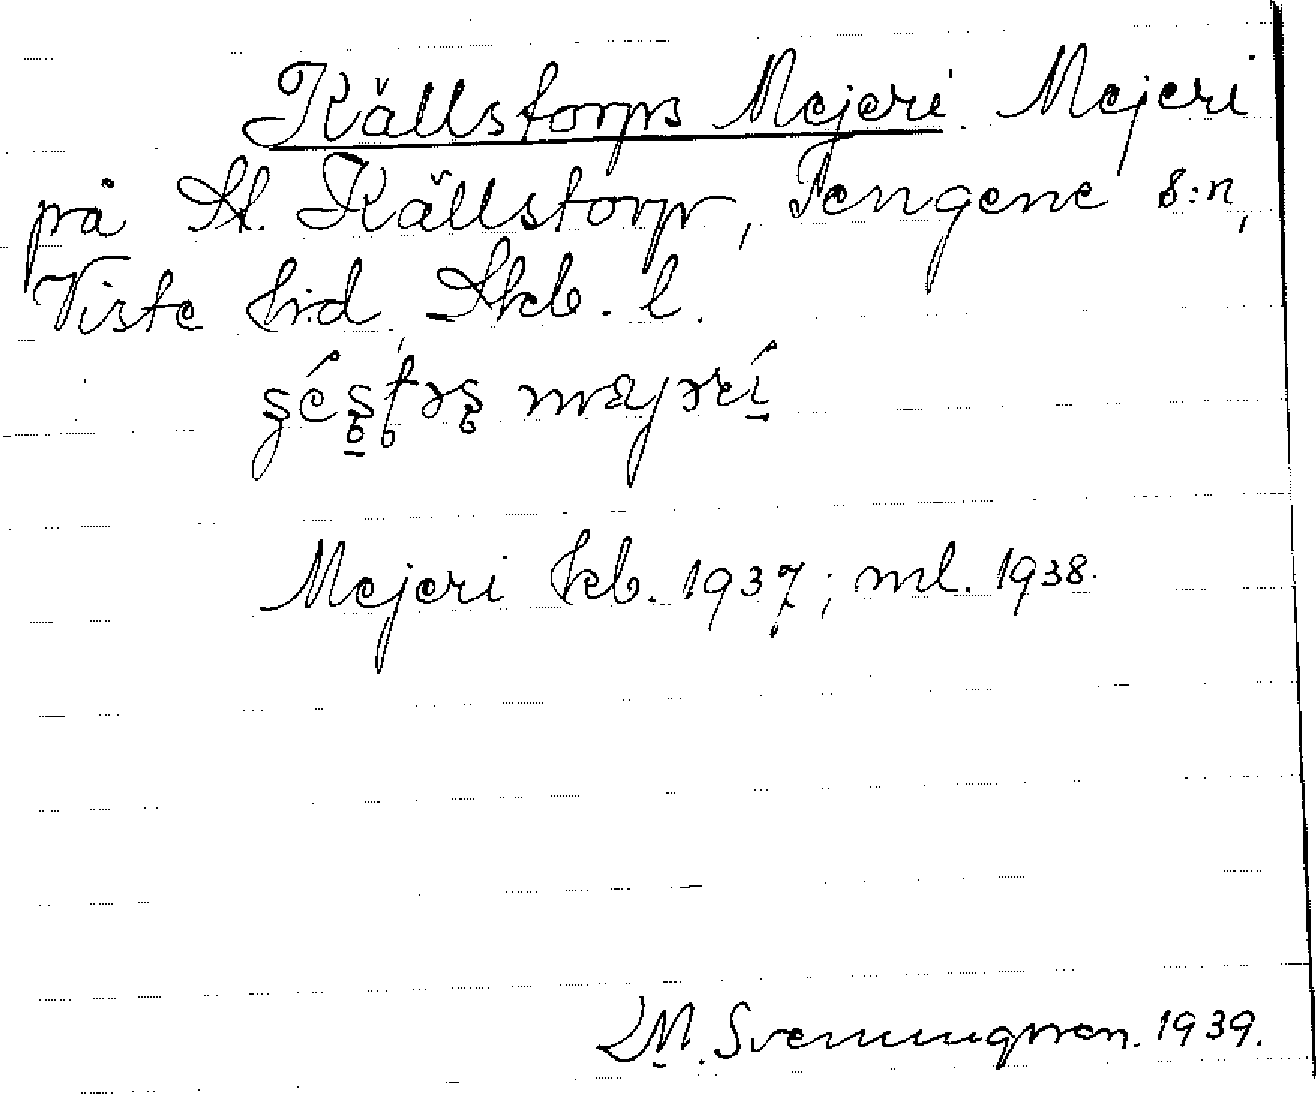 Källstorps Mejeri. Mejeri
på St. Källstorp, Tengene s:n,
Viste hd, Skb. l.
Mejeri kb. 1937; ml. 1938.
M. Svenningsson. 1939.